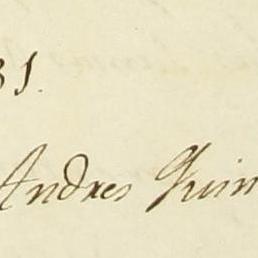 31.
Andres Quin